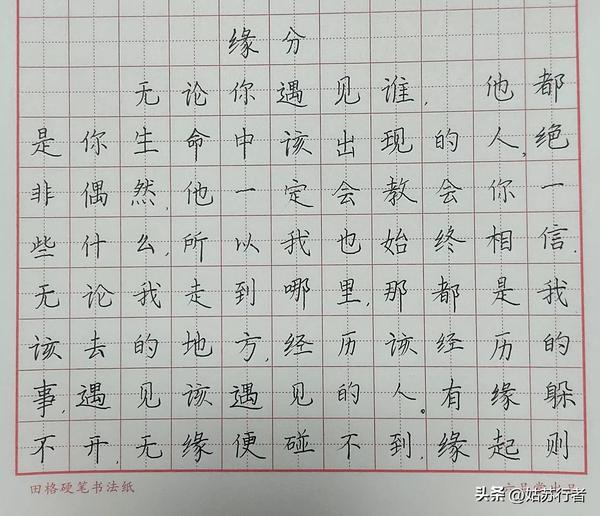 缘分
无论你遇见谁,他都
是你生命中该出现的人,绝
非偶然,他一定会教会你一
些什么,所以我也始终相信.
无论我走到哪里,那都是我
该去的地方,经历该经历的
事,遇见该遇见的人。有缘躲
不开,无缘便碰不到,缘起则
田格硬笔书法纸
头条@姑苏行者